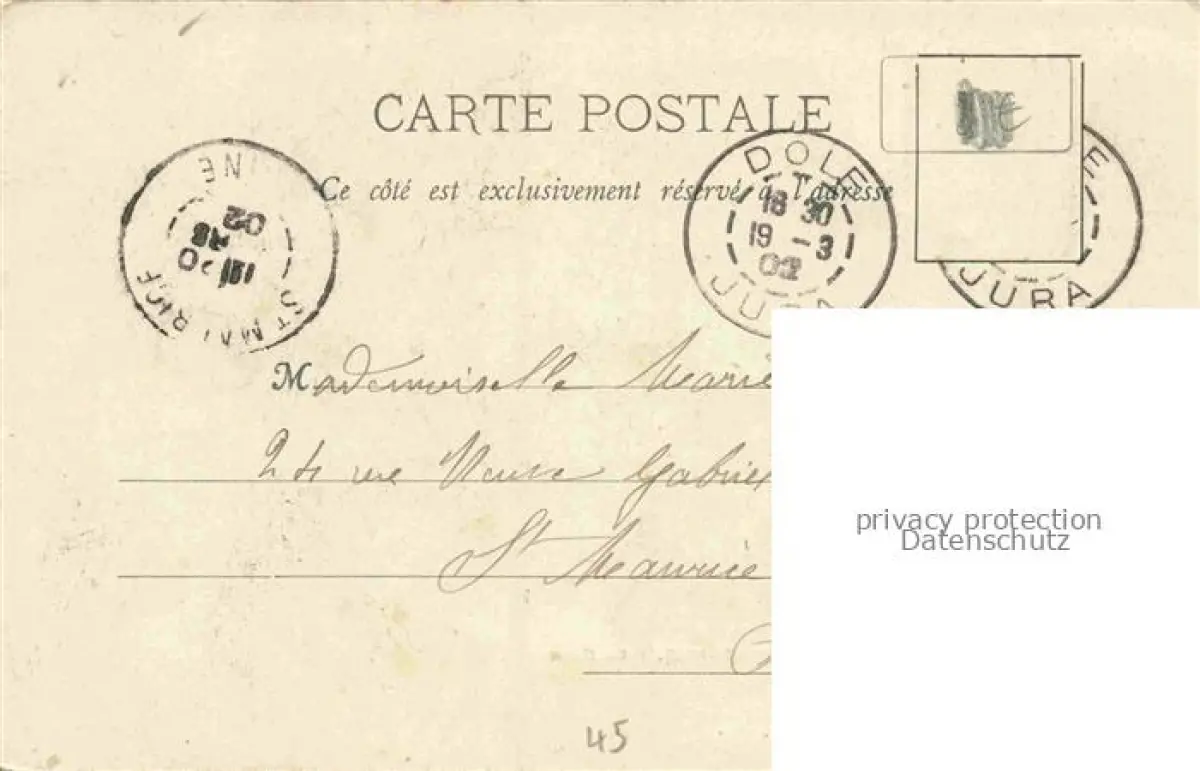 CARTE POSTALE
Ce côté est exclusivement réservé à l'adresse
DOLE
18 30
19 -3
02
JURA
E
JURA
ST MAURICE
02
INE
Mademoiselle Marie
24 rue Neuve Gabriel
St Maurice
45
privacy protection
Datenschutz